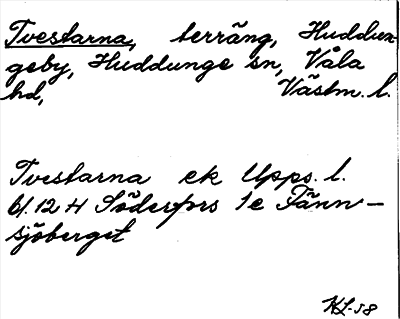 Tvestarna, terräng, Huddun-
geby, Huddunge sn, Våla
hd, Västm. l.
Tvestarna ek Upps. l.
bl. 12 H Söderfors 1e Tänn-
sjöberget
KL-58